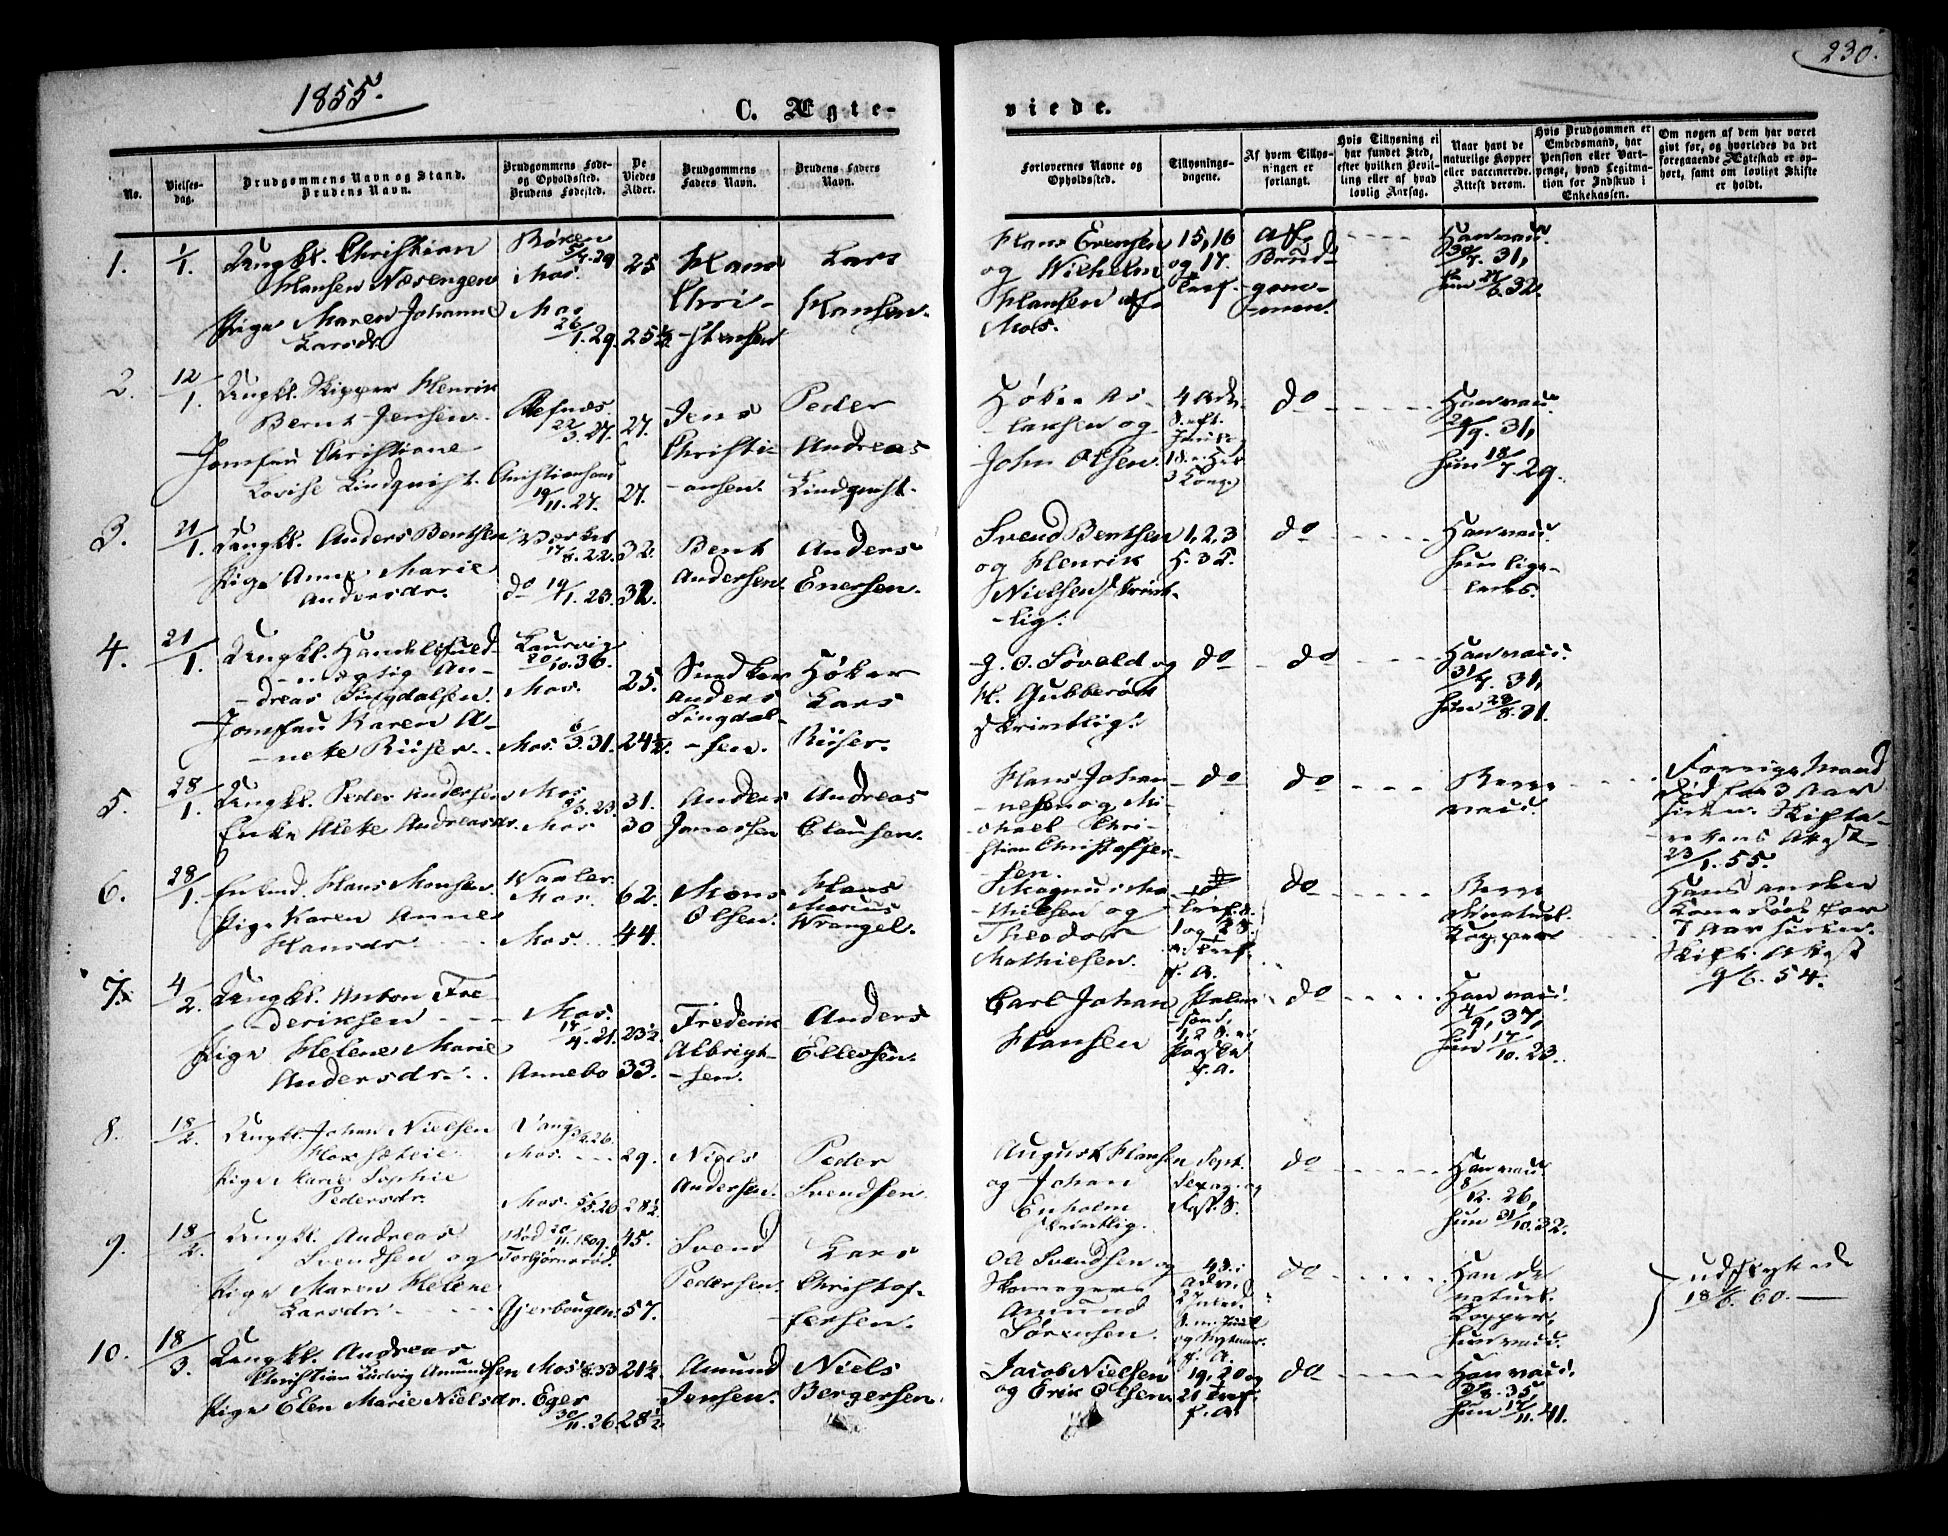 230.
1855.
C. Ægte-
viede.
No.
Vielses-
dag.
Brudgommens Navn og Stand.
Brudens Navn.
Brudgommens Føde-
og Opholdssted.
Brudens Fødested.
De
Viedes
Alder.
Brudgommens
Faders Navn.
Brudens Faders
Navn.
Forlovernes Navne og
Opholdssted.
Tillysnings-
dagene.
Af hvem Tillys-
ningen er
forlangt.
Hvis Tillysning ei
har fundet Sted,
efter hvilken Bevil-
ling eller af hvad
lovlig Aarsag.
Naar havt de
naturlige Kopper
eller vaccinerede.
Attest derom.
Hvis Brudgommen er
Embedsmand, har
Pension eller Vart-
penge, hvad Legitima-
tion for Indskud i
Enkekassen.
Om nogen af dem har været
gift før, og hvorledes da det
foregaaende Ægteskab er op-
hørt, samt om lovligt Skifte
er holdt.
1.
1/1.
Ungkl. Christian
Hansen Næsengen
Pige Maren Johanne
Larsdr.
Mos.
Mos
26/1. 29.
25
25½
Hans
Chri-
-stensen
Lars
Hansen.
Hans Evensen
og Wilhelm
Hansen af
Mos.
15, 16
og 17.
Af
Brud-
gom-
-men.
Han vacc.
30/7. 31,
2.
12/1.
Ungkl. Skipper Henrik
Bernt Jensen.
Jomfru Christiane
Lovise Lindquist.
Refnæs.
22/3. 27.
Christianssund
19/11. 27.
27.
27.
Jens
Christi-
-ansen.
Peder
Andreas
Lindquist.
John Olsen.
do
Han vacc.
29/9. 31,
hun 18/7. 29.
3.
21/1.
Ungkl. Anders Bentsen
Pige Anne Marie
Andersdr.
17/8. 22.
do 19/1. 23.
32.
32.
Bent
Andersen.
Anders
Enersen.
Svend Bentsen
og Henrik
Nielsen skrivt-
-lig.
1, 2, 3
do
Han vacc.
hun lige-
-ledes.
4.
21/1.
Ungkl. Handelsfuld-
-mægtig An-
-dreas Singdalsen.
Jomfru Karen A-
-nete Riiser.
Laurvig
Mos.
Mos. 6/3. 31.
25.
24½.
Anders
Singdal-
-sen.
Høker
Lars
Riiser.
G. O. Søvold og
H. Gubberød
skrivtlig.
do
do
Han vacc.
31/7. 31,
5.
28/1.
Ungkl. Peder Andersen
Enke Alete Andreasdr.
Mos.
Mos
31.
30
Anders
Jonassen
Andreas
Clausen.
Hans Johan-
-nesen og Mi-
-chael Chri-
-stian Christoffer-
-sen.
do
do
Begge
vacc.
Forrige Mand
død for 3 Aar
siden. Skifte-
-rettens Attest
23/1. 55.
6.
28/1.
Enkmd. Hans Monsen.
Pige Karen Anne
Hansdr.
Waaler.
Mos.
Mos.
62.
44.
Mons
Olsen.
Hans
Marius
Wrangel.
Magnus Ma-
-thiesen og
Theodor
Mathiesen.
do
Begge
naturl.
Kopper
Hans anden
Kone død for
7 Aar siden.
Skift. Attest
9/6. 54.
7.
4/2.
Ungkl. Anton Fre-
-deriksen
Pige Helene Marie
Andersdr.
Mos.
Annebo
23½
33.
Frederik
Albrigt-
-sen.
Anders
Ellevsen.
Carl Johan
Hansen
do
Han vacc.
4/9. 37,
hun 17/10. 23.
8.
18/2.
Ungkl. Johan Nielsen
Pige Marie Sophie
Pedersdr.
Vang
Mos.
Mos. 5/5. 26
29.
28½
Niels
Andersen.
Peder
Svendsen.
August Hansen
og Johan
Enholm
skrivtlig.
Sept.
Sexag. og
Fast. S.
do
Han vacc.
8/12. 26,
hun 31/10. 32.
9.
18/2.
Ungkl. Andreas
Svendsen og
Pige Maren Helene
Larsdr.
Torbjørnsrød.
Gjerbougen
45.
57.
Svend
Pedersen.
Lars
Christof-
-fersen.
Ole Svendsen og
Skomager
Amund
Sørensen.
4 S. i
Advent
do
Han de
naturl.
Kopper,
hun vacc.
udskytede
18/6. 60.
10.
18/3.
Ungkl. Andreas
Christian Ludvig Amundsen
Pige Elen Marie Nielsdr.
Mos
Eger
30/11. 26.
21½
28½
Amund
Jensen.
Niels
Bergersen.
Jacob Nielsen
og Erik Olsen.
19, 20 og
do
Han vacc.
hun 17/11. 41.